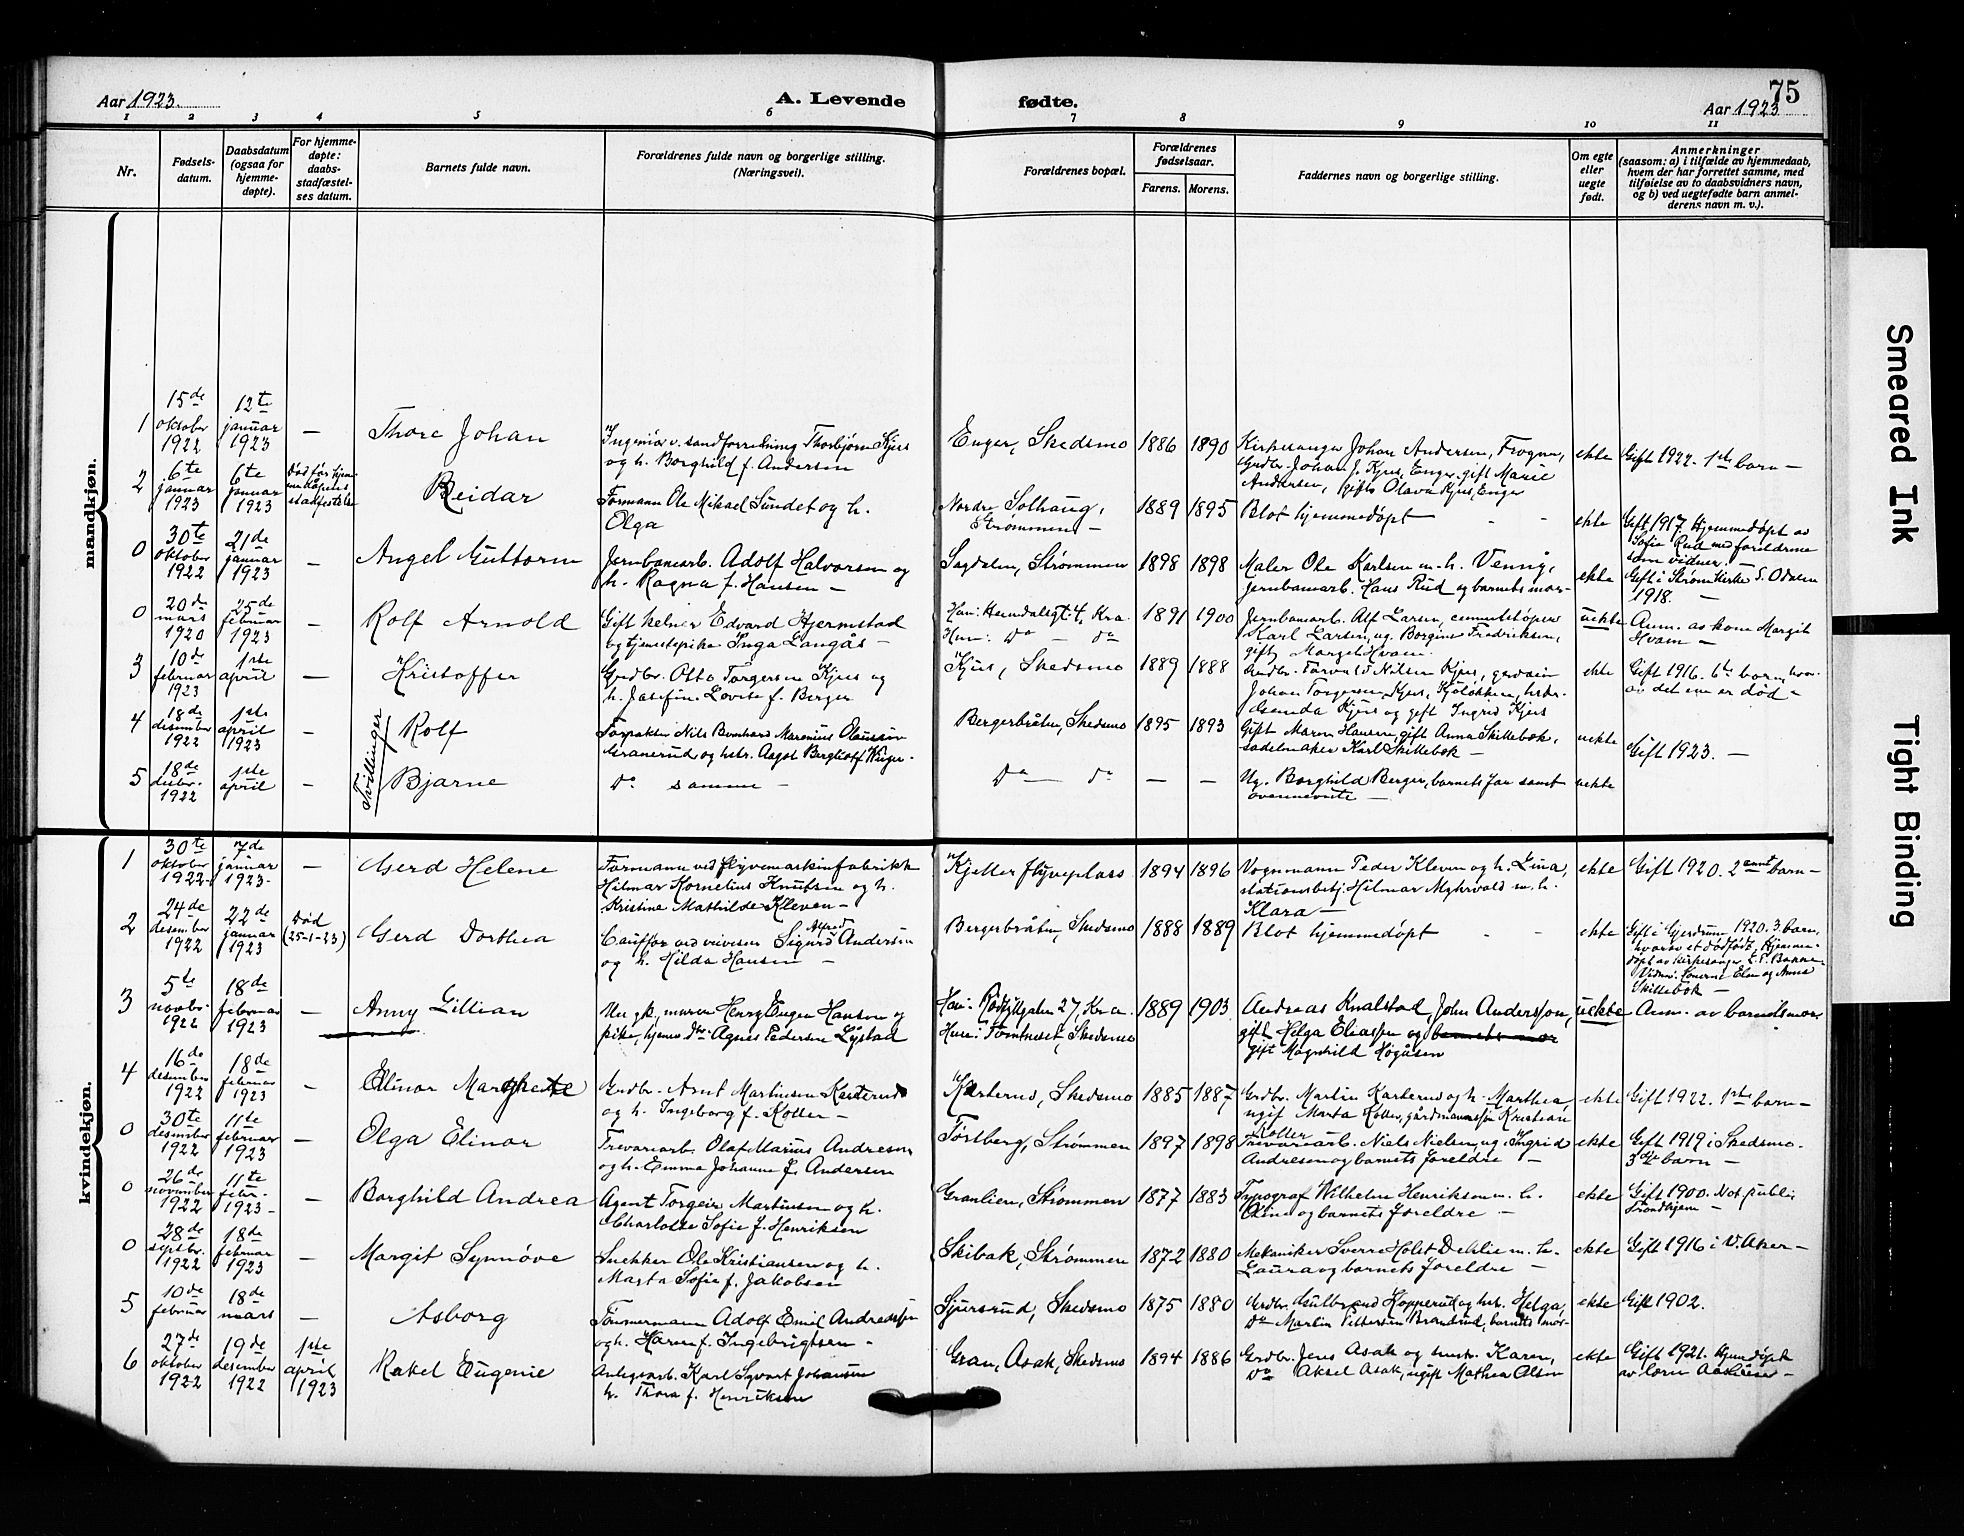 75
Aar 1923.
A. Levende
fødte.
Aar 1923
1 2 3 4 5 6 7 8 9 10 11
Nr.
Fødsels-
datum.
Daabsdatum
(ogsaa for
hjemme-
døpte).
For hjemme-
døpte:
daabs-
stadfæstel-
ses datum.
Barnets fulde navn.
Forældrenes fulde navn og borgerlige stilling.
(Næringsvei).
Forældrenes bopæl.
Forældrenes
fødselsaar.
Farens. Morens.
Faddernes navn og borgerlige stilling.
Om egte
eller
uegte
født.
Anmerkninger
(saasom: a) i tilfælde av hjemmedaab,
hvem der har forrettet samme, med
tilføielse av to daabsvidners navn,
og b) ved uegtefødte barn anmel-
derens navn m. v.).
mandkjøn.
1
15de
oktober
1922
12te
januar
1923
—
Thore Johan
Ingeniør v. sandforredning Thorbjørn Kjus
og h. Borghild f. Andersen
Enger, Skedsmo
1886 1890
Kirkesanger Johan Andersen, Frogner,
Grdbr. Johan J. Kjus, Enger, gift Marie
Andersen, gift Olava Kjus, Enger
ekte
Gift 1922. 1ste barn —
2
6te
januar
1923
6te
januar
1923
Død før hjem-
medåpens
stadfestelse
Reidar
Formann Ole Mikael Sundet og h.
Olga
Nordre Solhaug,
Strømmen —
1889 1895
Blot hjemmedøpt
ekte
Gift 1917. Hjemmedøpt av
Sofie Rud med foreldrene
som vidner. —
0
30te
oktober
1922
21de
januar
1923
—
Angel Guttorm
Jernbanearb. Adolf Halvorsen og
h. Ragna f. Hansen —
Sagdalen, Strømmen
1898 1898
Maler Ole Karlsen m. h. Venny,
Jernbanearb. Hans Rud og barnets mor-
ekte
Gift i Strøm kirke S. Odalen
1918. —
0
20de
mars
1920
25de
februar
1923
—
Rolf Arnold
Gift kelner Edvard Hjermstad
og tjenestepike Inga Langås —
Han: Heimdalsgt. 4, Kra.
Hun: Do — do
1891 1900
Jernbanearb. Alf Larsen, cementstøper
Karl Larsen, ug. Borgine Fredriksen,
gift Margit Hvam.
uekte
Anm. av kone Margit
Hvam —
3
10de
februar
1923
1ste
april
—
Kristoffer
Grdbr. Otto Torgersen Kjus og
h. Josefine Lovise f. Berger
Kjus, Skedsmo
1889 1888
Johan Torgersen Kjus,
og gift Ingrid Kjus
ekte
Gift 1916. 6te barn, hvor-
av det ene er død —
4
18de
desember
1922
1ste
april
1923
—
Tvillinger
Rolf
Forpakter Nils Bernhard Marenius Olaussen
Granerud og hstr. Aagot Bergliot f. Winger-
Bergerbråten, Skedsmo
1895 1893
Gift Maren Hansen, gift Anna Skillebek,
sadelmaker Karl Skillebek —
uekte
Gift 1923. —
5
18de
desbr.
1922
1ste
april
—
Bjarne
Do samme —
Do — do
— —
Ug. Borghild Berger, barnets far samt
ovennevnte —
uekte
kvindekjøn.
1
30te
oktober
1922
7de
januar
1923
—
Gerd Helene
Formann ved flyvemaskinfabrikk
Hilmar Kornelius Knutsen og h.
Kristine Mathilde Kleven —
Kjeller flyveplass
1894 1896
Vognmann Peder Kleven og h. Lina,
stationsbetj. Hilmar Myhrvold m. h.
Klara —
ekte
Gift 1920. 2annet barn —
2
24de
desember
1922
22de
januar
1923
Død
(25-1-23)
Gerd Dorthea
Alfred
Sigurd Andersen
og h. Hilda Hansen —
Bergerbråten, Skedsmo
1888 1889
Blot hjemmedøpt
ekte
Gift i Gjerdrum 1920. 3. barn,
hvorav et dødfødt. Hjemme-
døpt av kirkesanger
Skillebek —
3
5te
novbr.
1922
18de
februar
1923
—
Anny Lillian
Un. gk. murer Henry Eugen Hansen og
pike, hjemv. do Agnes Pedersen Lystad
Han: Rødfyllgaten 27, Kra.
Hun: Tomteset, Skedsmo
1889 1903
Andreas Knalstad, John Anderssen,
gift Helga Eliassen og barnets mor
gift Magnhild Høgåsen
uekte
Anm. av barnets mor
4
16de
desember
1922
18de
februar
1923
—
Elinor Marghete
Grdbr. Arnt Martinsen Karterud
og h. Ingeborg f. Koller —
Karterud, Skedsmo
1885 1887
Grdbr. Martin Karterud og h. Marthea
ugif. Marta Koller, gårdmannssøn Kristian
Koller
ekte
Gift 1922. 1ste barn —
0
30te
desember
1922
11te
februar
1923
—
Olga Elinor
Trevarearb. Olaf Marius Andresen
og h. Emma Johanne f. Andersen
Tørtberg, Strømmen
1897 1898
Trevarearb. Niels Nielsen, ug. Ingrid
Andresen og barnets foreldre —
ekte
Gift 1919 i Skedsmo.
3dje barn —
0
26de
november
1922
11te
febr.
1923
—
Borghild Andrea
Agent Torgeir Martinsen og h.
Charlotte Sofie f. Henriksen
Granlien, Strømmen
1877 1883
Typograf Wilhelm Henriksen m. h.
Oline og barnets foreldre —
ekte
Gift 1900. Not. publ. i
Trondhjem —
0
28de
septbr.
1922
18de
februar
1923
—
Margit Synnøve
Snekker Ole Kristiansen og h.
Marta Sofie f. Jakobsen
Skibak, Strømmen
1872 1880
Mekaniker Sverre Holst Dehlie m. h.
Laura og barnets foreldre —
ekte
Gift 1916 i V. Aker —
5
10de
februar
18de
mars
—
Asborg
Tømmermann Adolf Emil Andreassen
og h. Karen f. Ingebrigtsen —
Sjursrud, Skedsmo
1875 1880
Grdbr. Gulbrand Hopperud og hst. Helga,
Do Martin Pettersen Brandrud, barnets mor-
ekte
Gift 1902.
6
27de
oktober
1922
19de
desember
1922
1ste
april
1923
Rakel Eugenie
Anlegsarb. Karl Sigvart Johansen
h. Thora f. Henriksen
Gran, Asak, Skedsmo
1894 1886
Grdbr. Jens Asak og hustr. Karen,
Do Aksel Asak, ugift Mathea Olsen
ekte
Gift 1921. Hjemdøpt
av lærer Aaketer —
Smeared Ink
Tight Binding